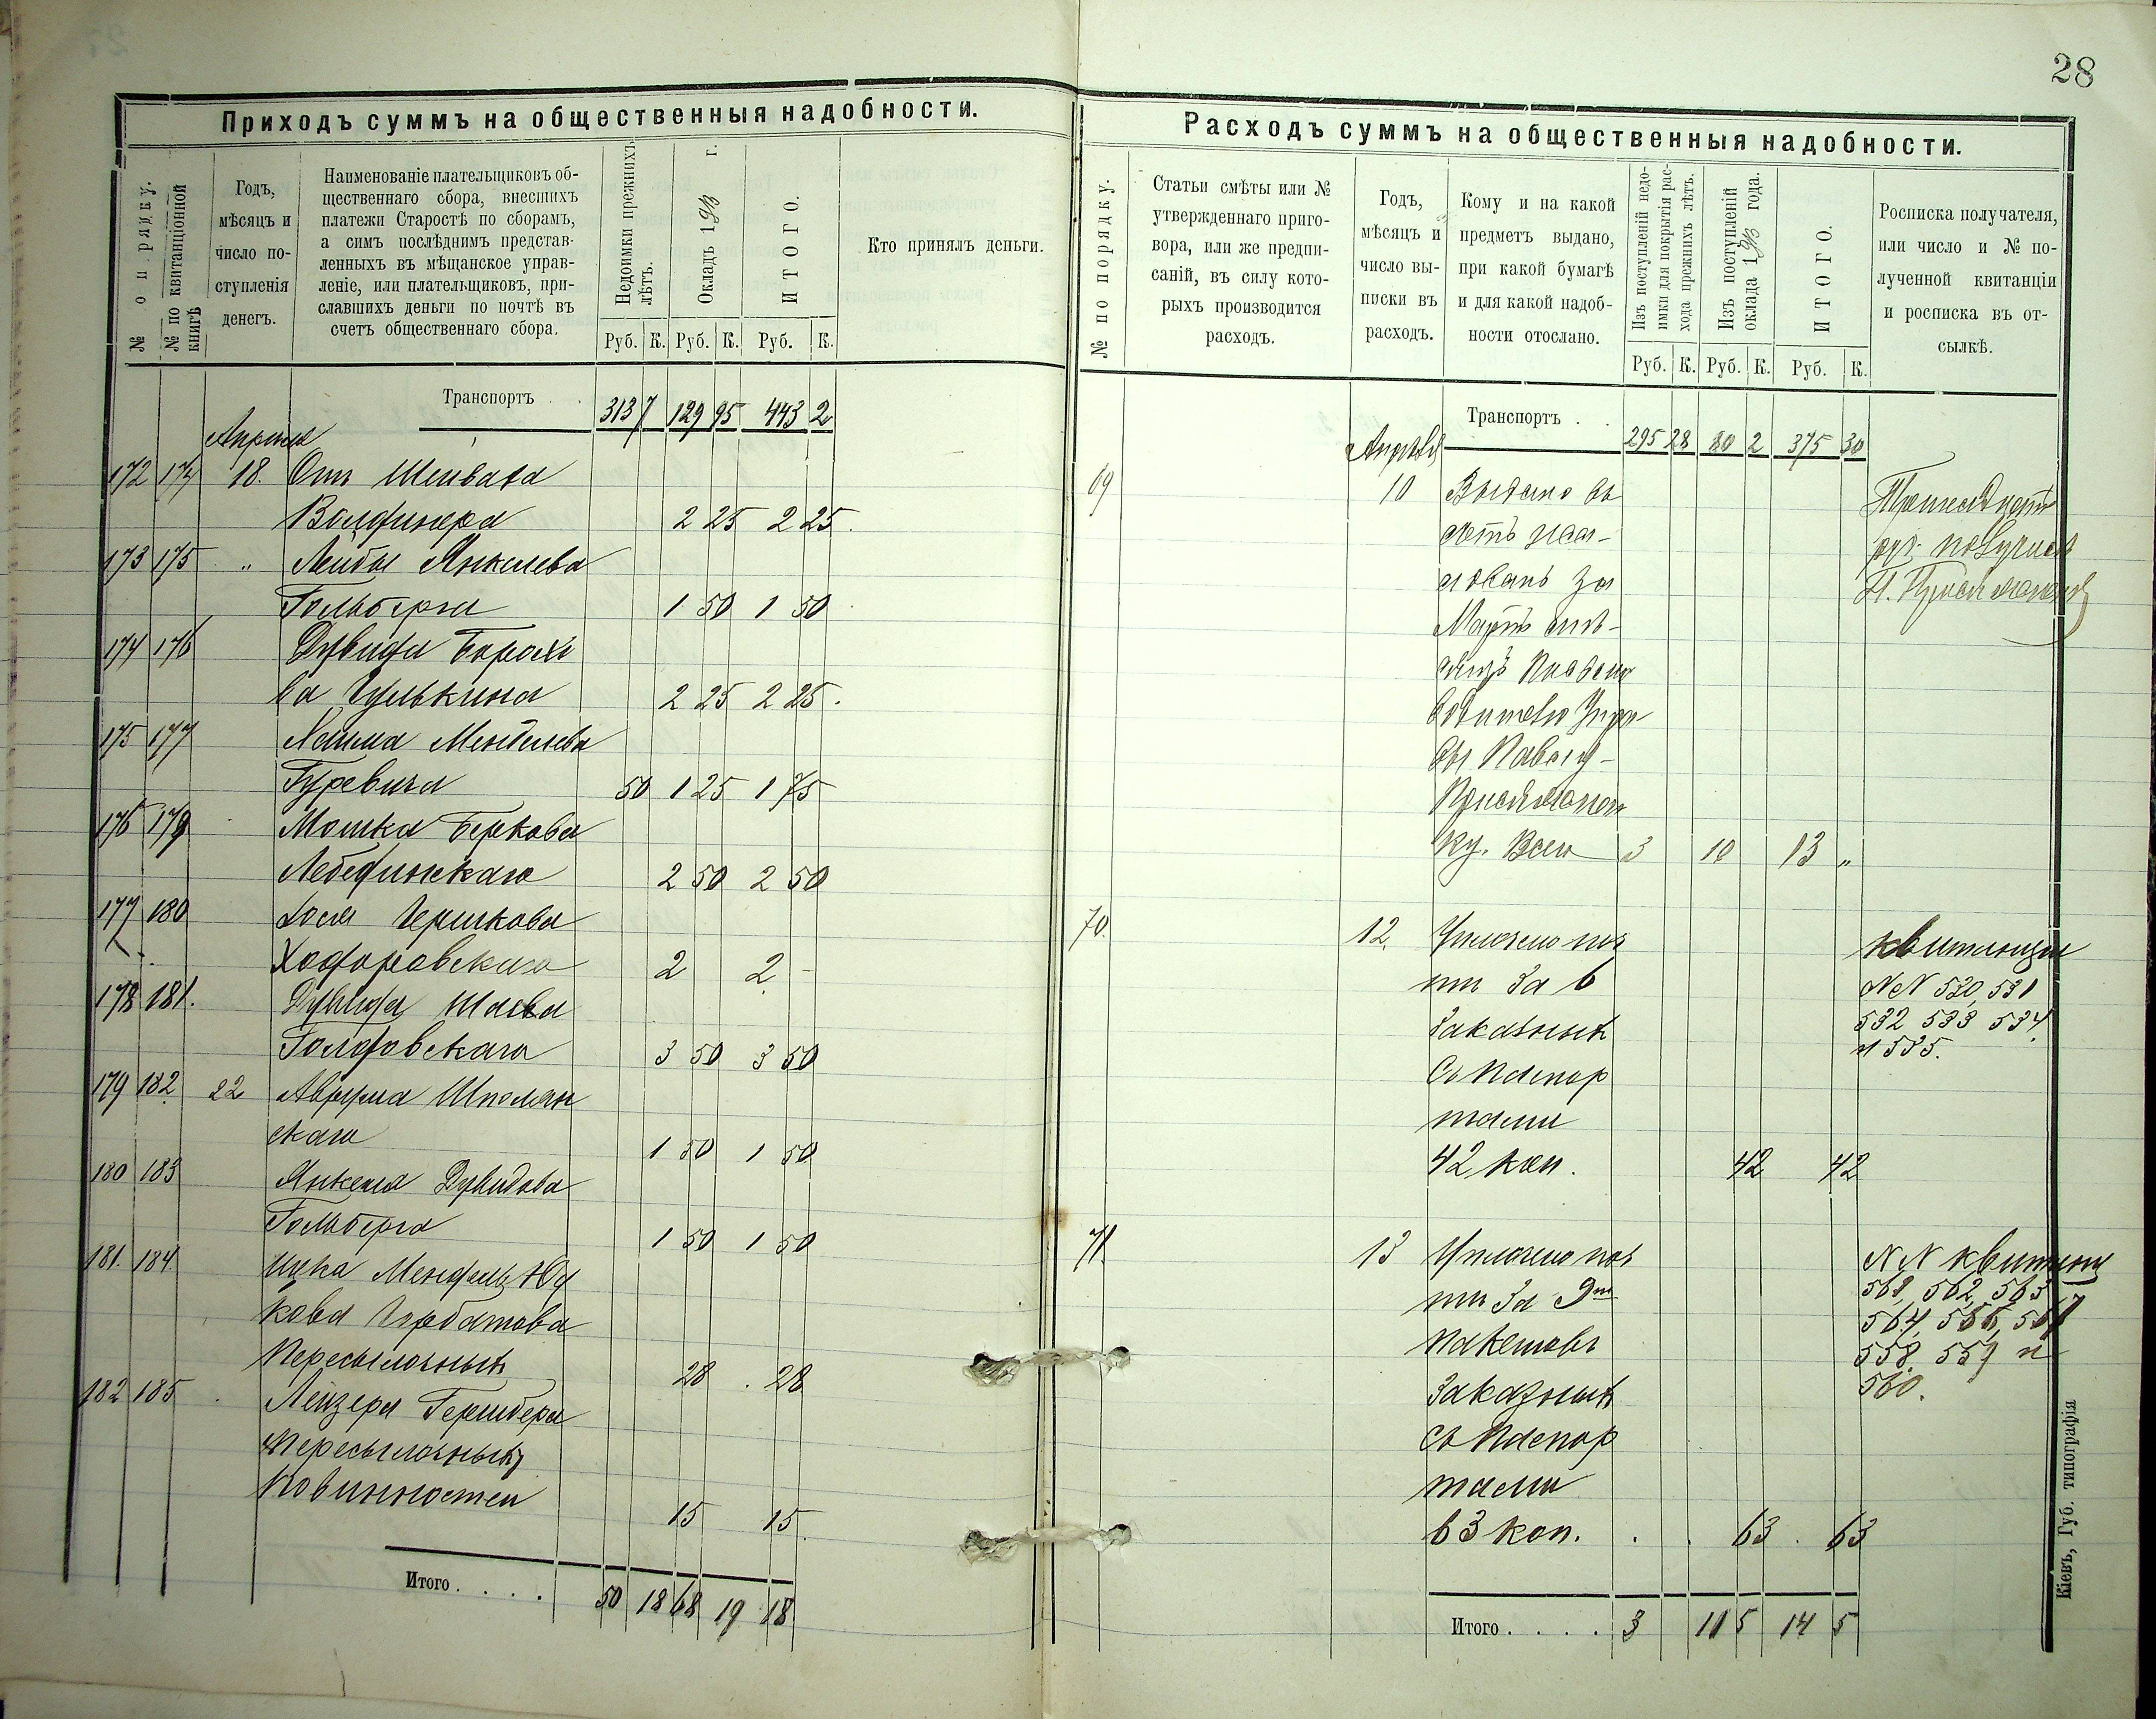 28
Приходъ суммъ на общественныя надобности.
№ по порядку.
№ по квитанціонной книгѣ
Годъ, мѣсяцъ и число поступленія денегъ.
Наименованіе плательщиковъ об-
щественнаго сбора, внесшихъ
платежи Старостѣ по сборамъ,
а симъ послѣднимъ представ-
ленныхъ въ мѣщанское управ-
леніе, или плательщиковъ, при-
славшихъ деньги по почтѣ въ
счетъ общественнаго сбора.
Недоимки прежнихъ лѣтъ.
Окладъ 1893 г.
ИТОГО.
Кто принялъ деньги.
Руб. К. Руб. К. Руб. К.
Транспортъ . . 313 7 129 95 443 2
Апреля
172 174 18. Отъ
2 25 2 25.
173 175 " Лейбы Янкелева
Гольберга 1 50 1 50
174 176 Дувида Борохо
ва Гулькина 2 25 2 25.
175 177 Хаима Менделева
Гуревича 50 1 25 1 75
176 179 Мошка Беркова
Лебединскаго 2 50 2 50
177 180 Іося Гершкова
Ходоровскаго 2 2 -
178 181. Дувида Шаева
Голдовскаго 3 50 3 50
179 182. 22 Аврума Шполян
скаго 1 50 1 50
180 183 Янкеля Дувидова
Гольберга 1 50 1 50
181. 184. Ицка Мендель Юд
кова Горбатова
Пересылочныхъ 28 . 28
182 185 . Лейзера
Пересылочныхъ
Повинностей 15 15.
Итого . . . . 50 18 68 19 18
Расходъ суммъ на общественныя надобности.
№ по порядку.
Статьи смѣты или №
утвержденнаго приго-
вора, или же предпи-
саній, въ силу кото-
рыхъ производится
расходъ.
Годъ,
мѣсяцъ и
число вы-
писки въ
расходъ.
Кому и на какой
предметъ выдано,
при какой бумагѣ
и для какой надоб-
ности отослано.
Изъ поступленій недо-
имки для покрытія рас-
хода прежнихъ лѣтъ.
Изъ поступленій
оклада 1893 года.
ИТОГО.
Росписка получателя,
или число и № по-
лученной квитанціи
и росписка въ от-
сылкѣ.
Руб. К. Руб. К. Руб. К.
Транспортъ . . 295 28 80 2 375 30
Апрѣля
69 10 Выдано въ
счетъ жал-
ованья за
Мартъ мѣ-
сяцъ
водителю Упра
вы Павлу
ку. Всего 3 10 13 "
Тринадцать
руб. получилъ
70. 12. Уплачено поч
ти за 6
заказныхъ
съ паспор
тами
42 коп. 42 42
квитанціи
NN 530, 531
532 533 534,
и 535.
71. 13 Уплачено поч
ти за 9ть
пакетовъ
заказныхъ
съ паспор
тами
63 коп. . . 63 . 63
NN квитанц
561, 562, 563
564, 566, 567
558. 559 и
560.
Итого . . . . 3 11 5 14 5
Кіевъ, Губ. типографія